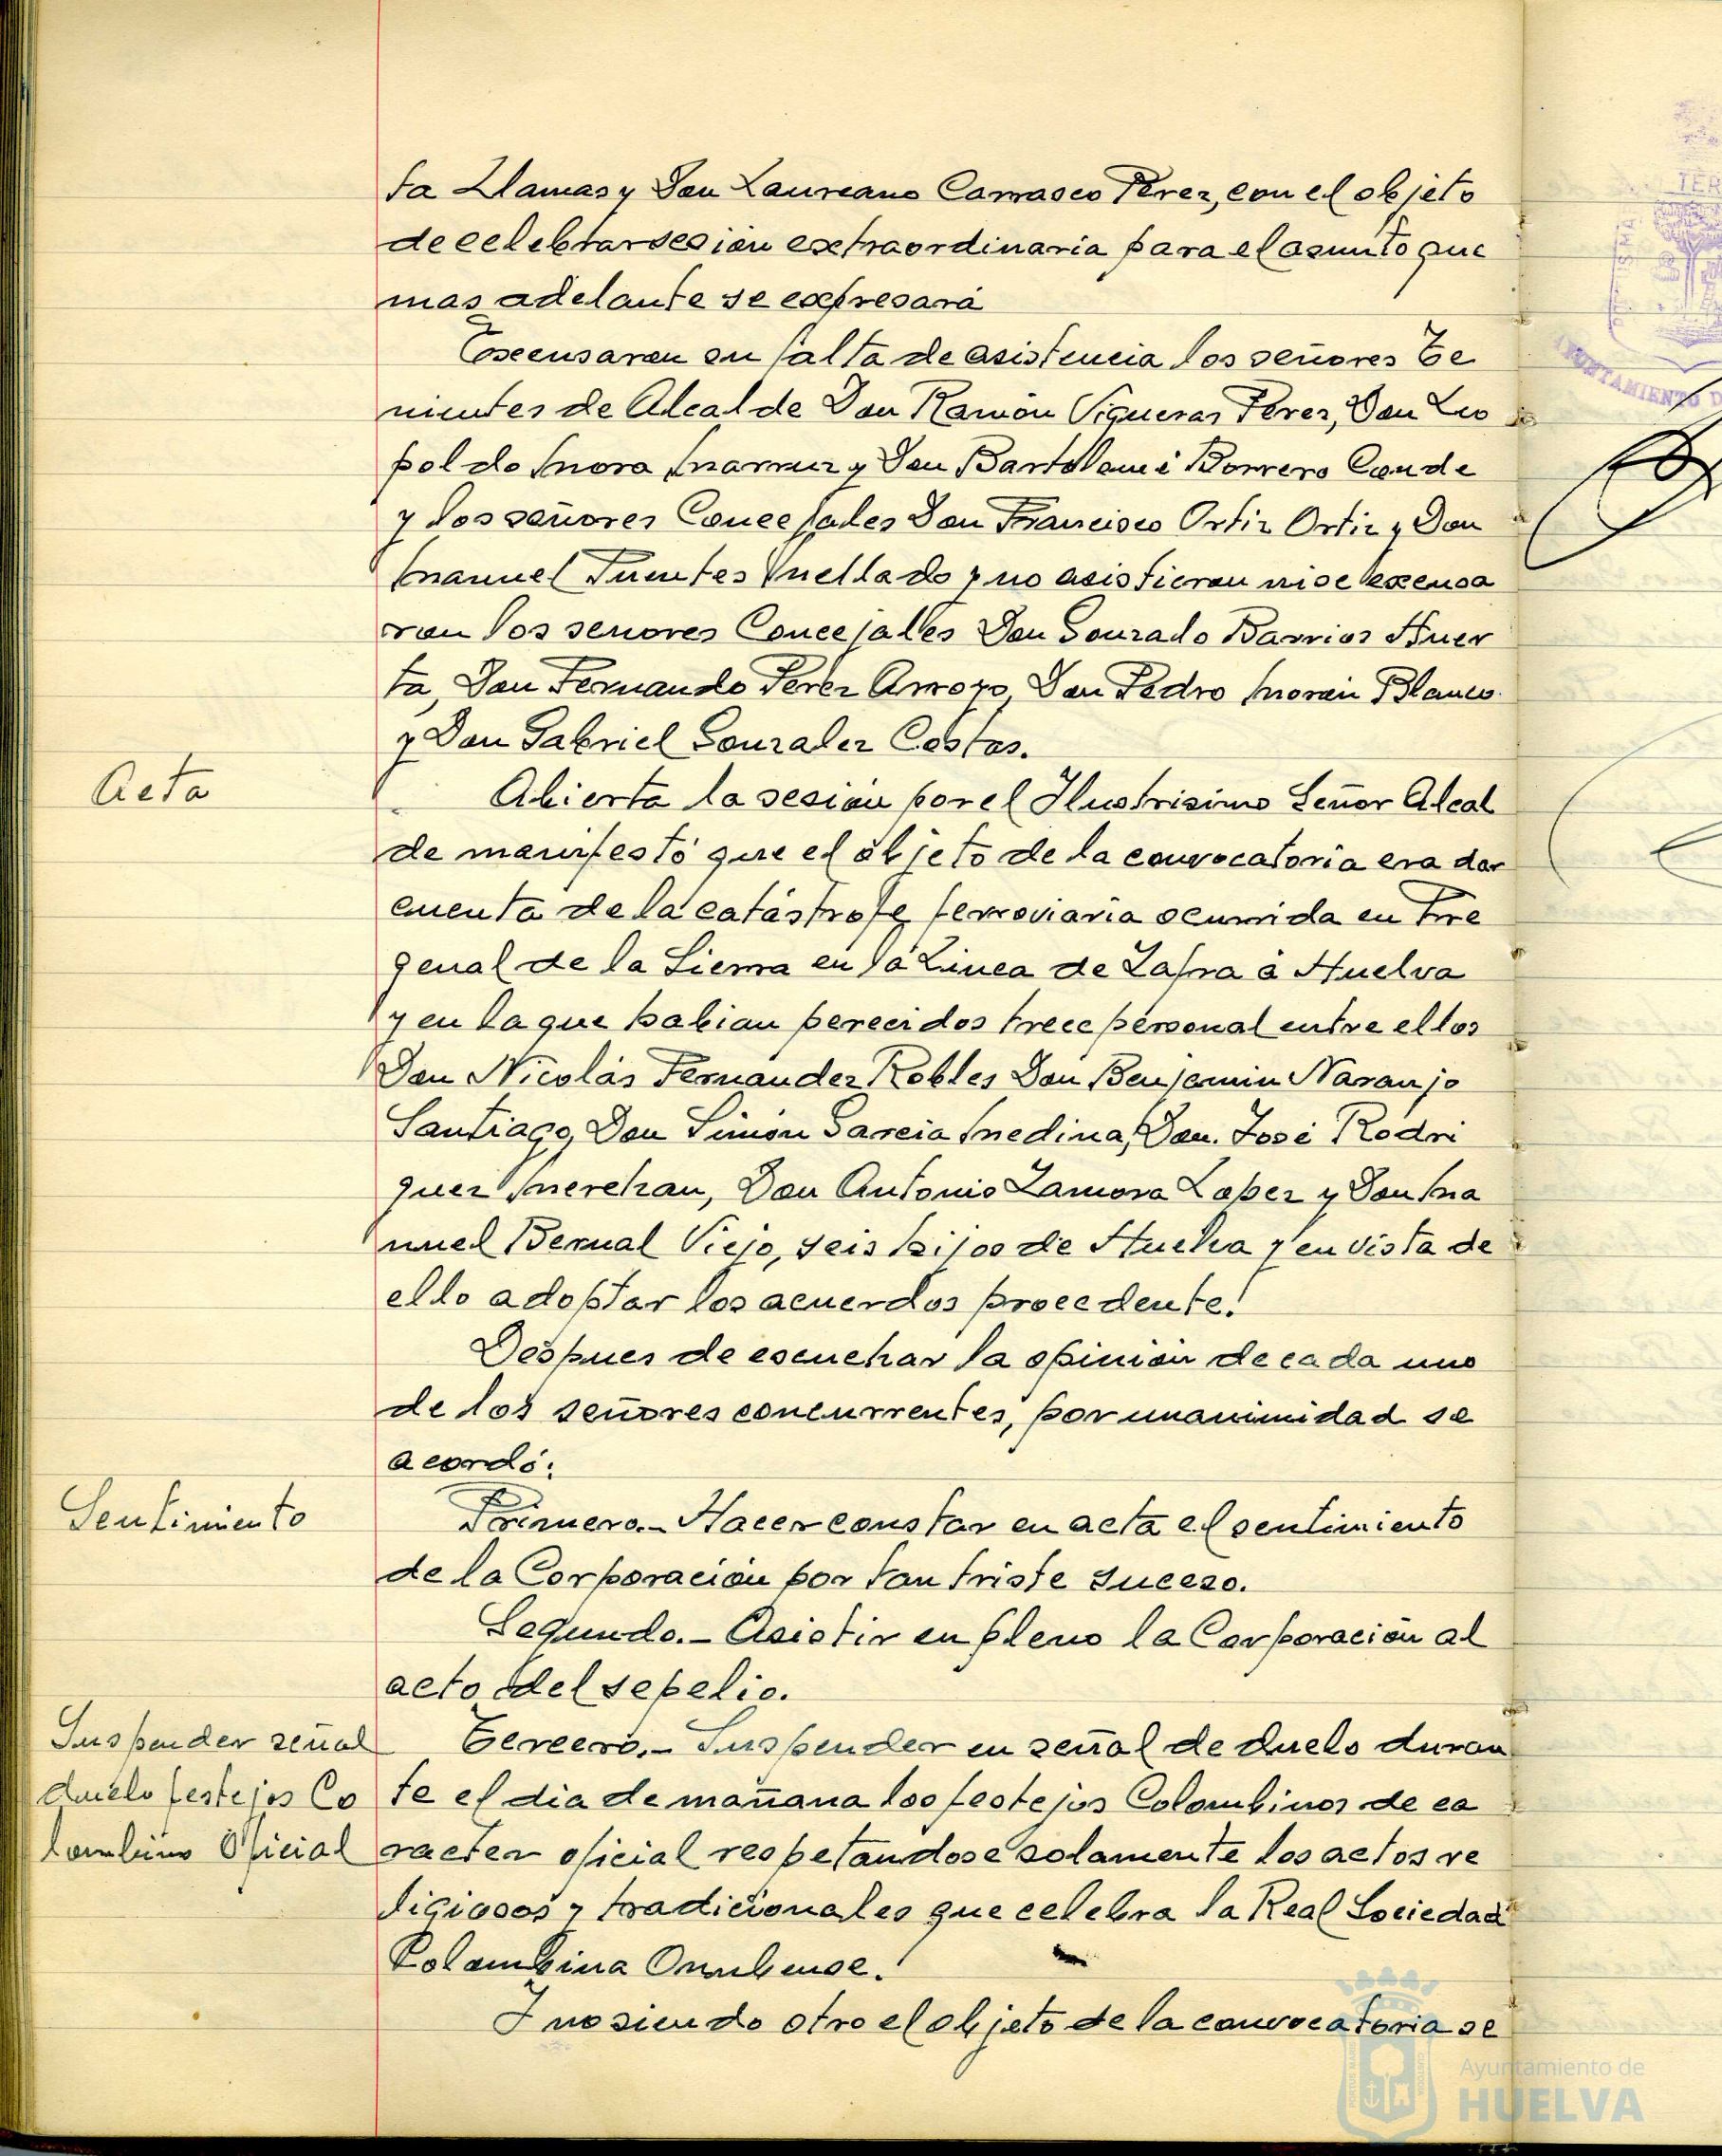 ta Llamas y Don Laureano Carrasco Perez, con el objeto
de celebrar sesion extraordinaria para el asunto que
mas adelante se expresará
Excusaron su falta de asistencia los señores Te
nientes de Alcalde Don Ramón Vigueras Perez, Don Leo
poldo Mora Marmr y Don Bartolomé Borrero Conde
y los señores Concejales Don Francisco Ortiz Ortiz y Don
Manuel Fuentes Mellado y no asistieron ni se excusa
ron los señores Concejales Don Gonzalo Barrios Huer
ta, Don Fernando Perez Arroyo, Don Pedro Morón Blanco
y Don Gabriel Gonzalez Costas.
Acta
Abierta la sesión por el Ilustrisimo Señor Alcal
de manifestó que el objeto de la convocatoria era dar
cuenta de la catástrofe ferroviaria ocurrida en Fre
genal de la Sierra en la Linea de Zafra á Huelva
y en la que habian perecidos trece personal entre ellos
Don Nicolás Fernandez Robles Don Benjamin Naranjo
Santiago, Don Simón Garcia Medina, Don. José Rodri
guez Merchan, Don Antonio Zamora Lopez y Don Ma
nuel Bernal Viejo, seis hijos de Huelva y en vista de
ello adoptar los acuerdos procedente.
Despues de escuchar la opinión de cada uno
de los señores concurrentes, por unanimidad se
acordó:
Sentimiento
Primero.- Hacer constar en acta el sentimiento
de la Corporación por tan triste suceso.
Segundo.- Asistir en pleno la Corporación al
acto del sepelio.
Suspender señal
duelo festejos Co
lombino Oficial
Tercero.- Suspender en señal de duelo duran
te el dia de mañana los festejos Colombinos de ca
racter oficial respetandose solamente los actos re
ligiosos y tradicionales que celebra la Real Sociedad
Colombina Onubense.
Y no siendo otro el objeto de la convocatoria se
AYUNTAMIENTO D
Ayuntamiento de
HUELVA